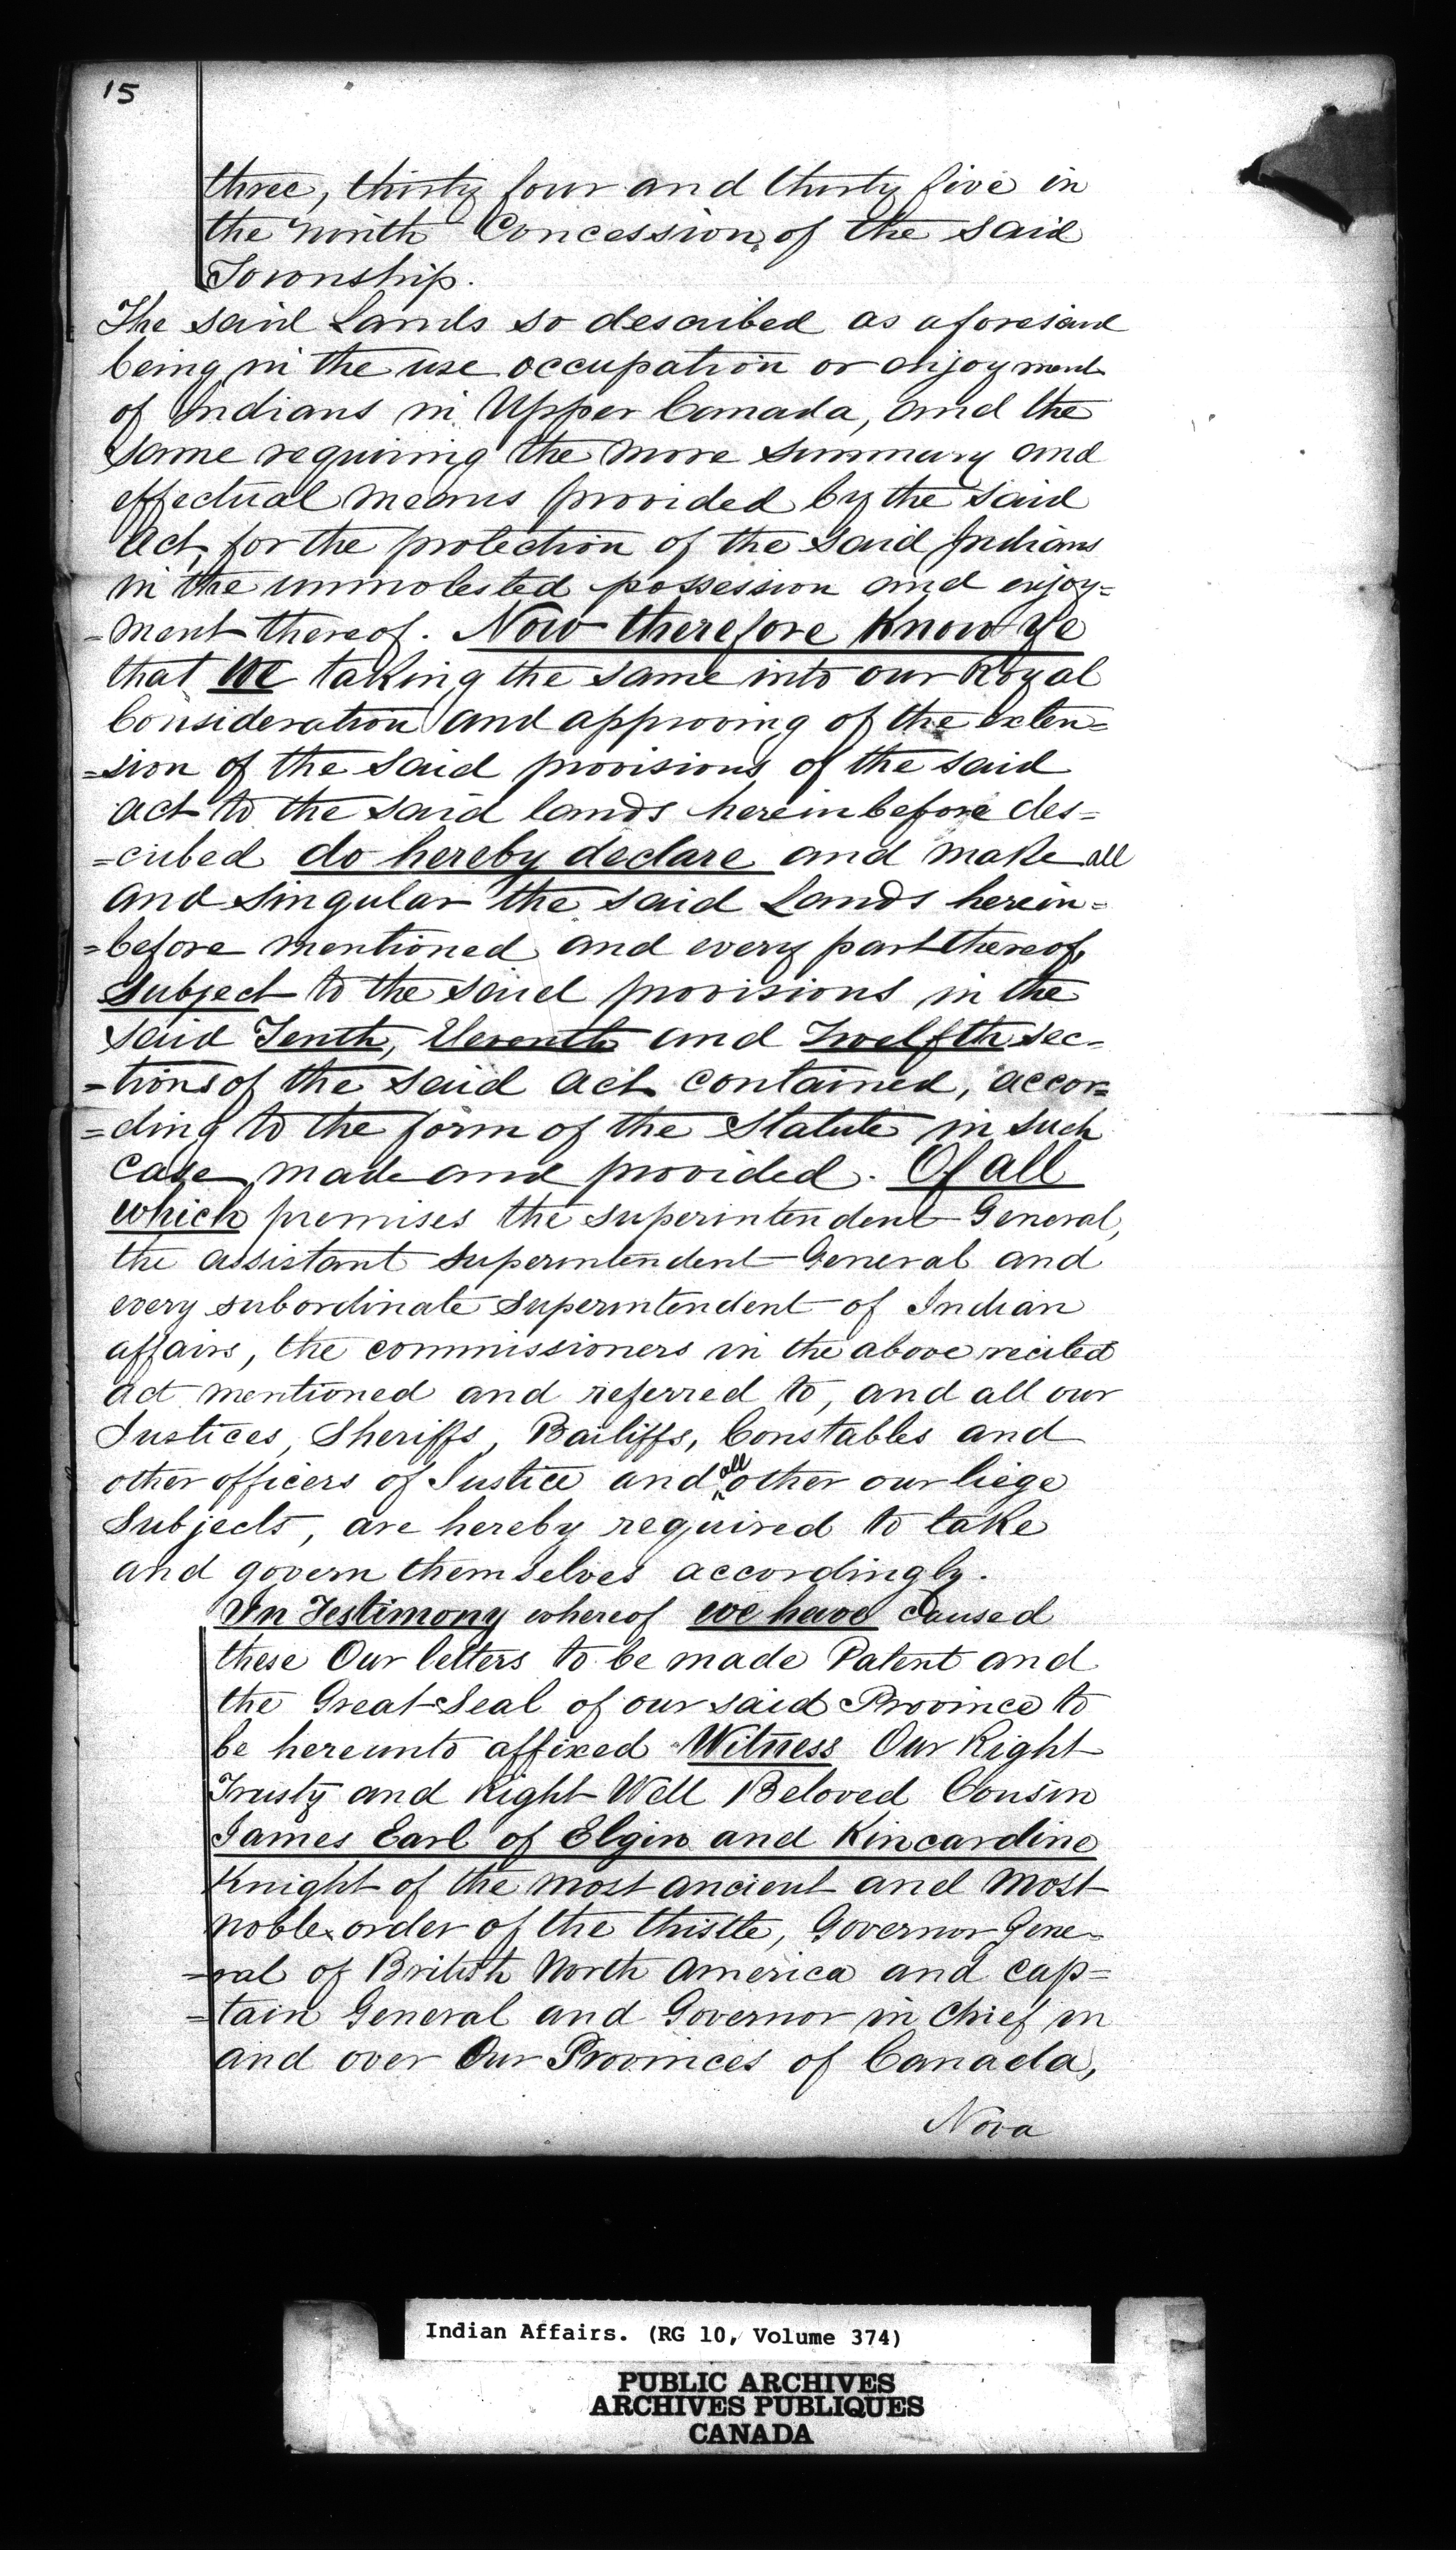 15
three, thirty four and thirty five in
the ninth Concession, of the said
Township.
The said Lands so described as aforesaid
being in the use occupation or enjoyment
of Indians in Upper Canada, and the
same requiring the more summary and
effectual means provided by the said
Act, for the protection of the said Indians
in the unmolested possession and enjoy=
=ment thereof. Now therefore Know Ye
that We taking the same into our Royal
Consideration and approving of the exten=
=sion of the said provisions of the said
act to the said lands hereinbefore des=
=cribed do hereby declare and make all
and singular the said Lands herein=
=before mentioned and every part thereof,
subject to the said provisions in the
said Tenth, Eleventh and Twelfth sec=
=tions of the said act contained, accor=
=ding to the form of the Statute in such
case made and provided. Of all
which premises the superintendent General,
the assistant superintendent General and
every subordinate superintendent of Indian
affairs, the commissioners in the above recited
act mentioned and referred to, and all our
Justices, Sheriffs, Bailiffs, Constables and
other officers of Justice and all other our liege
Subjects, are hereby required to take
and govern themselves accordingly.
In Testimony whereof we have caused
these Our letters to be made Patent and
the Great Seal of our said Province to
be hereunto affixed Witness Our Right
Trusty and Right Well Beloved Cousin
James Earl of Elgin and Kincardine
Knight of the most ancient and most
noble order of the thistle, Governor Gene=
=ral of British North America and Cap=
=tain General and Governor in Chief in
and over Our Provinces of Canada,
Nova
Indian Affairs. (RG 10, Volume 374)
PUBLIC ARCHIVES
ARCHIVES PUBLIQUES
CANADA